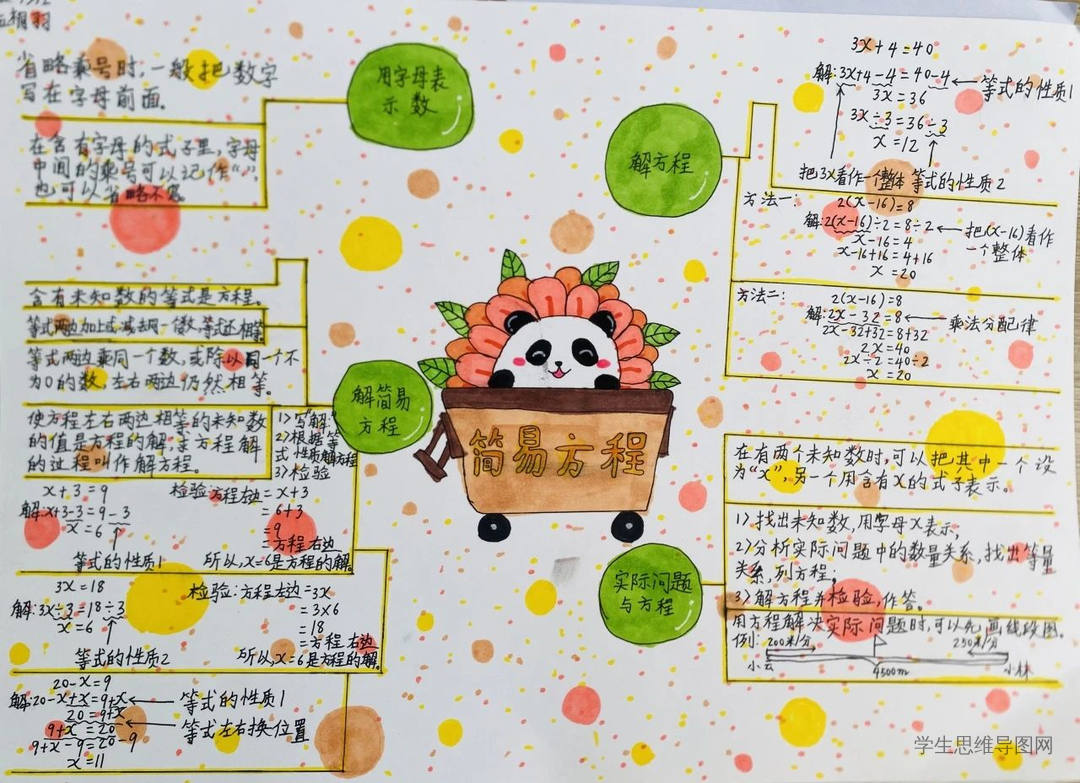 省略乘号时,一般把数字
写在字母前面。
用字母表
示数
在含有字母的式子里,字母
中间的乘号可以记作“·”,
也可以省略不写。
含有未知数的等式是方程。
等式两边加上或减去同一个数,等式还相等
等式两边乘同一个数,或除以同一个不
为0的数,左右两边仍然相等。
解简易
方程
使方程左右两边相等的未知数
的值是方程的解,求方程解
的过程叫作解方程。
1>写“解”
2>根据等
式性质解方程
3>检验
x+3=9
解x+3-3=9-3
x=6
等式的性质1
检验方程左边=x+3
=6+3
=9
=方程右边
所以,x=6是方程的解。
3x=18
解:3x÷3=18÷3
x=6
等式的性质2
检验:方程左边=3x
=3×6
=18
=方程右边
所以x=6是方程的解。
20-x=9
解:20-x+x=9+x
等式的性质1
20=9+x
9+x=20
等式左右换位置
9+x-9=20-9
x=11
简易方程
解方程
3x+4=40
解:3x+4-4=40-4
等式的性质1
3x=36
3x÷3=36÷3
x=12
把3x看作一个整体 等式的性质2
方法一:
2(x-16)=8
解:2(x-16)÷2=8÷2
把(x-16)看作
一个整体
x-16=4
x-16+16=4+16
x=20
方法二:
2(x-16)=8
解:2x-32=8
乘法分配律
2x-32+32=8+32
2x=40
2x÷2=40÷2
x=20
实际问题
与方程
在有两个未知数时,可以把其中一个设
为“x”,另一个用含有x的式子表示。
1>找出未知数,用字母x表示,
2>分析实际问题中的数量关系,找出等量
关系,列方程。
3>解方程并检验,作答。
用方程解决实际问题时,可以先画线段图。
例: 200米/分 250米/分
小云 4500m 小林
学生思维导图网